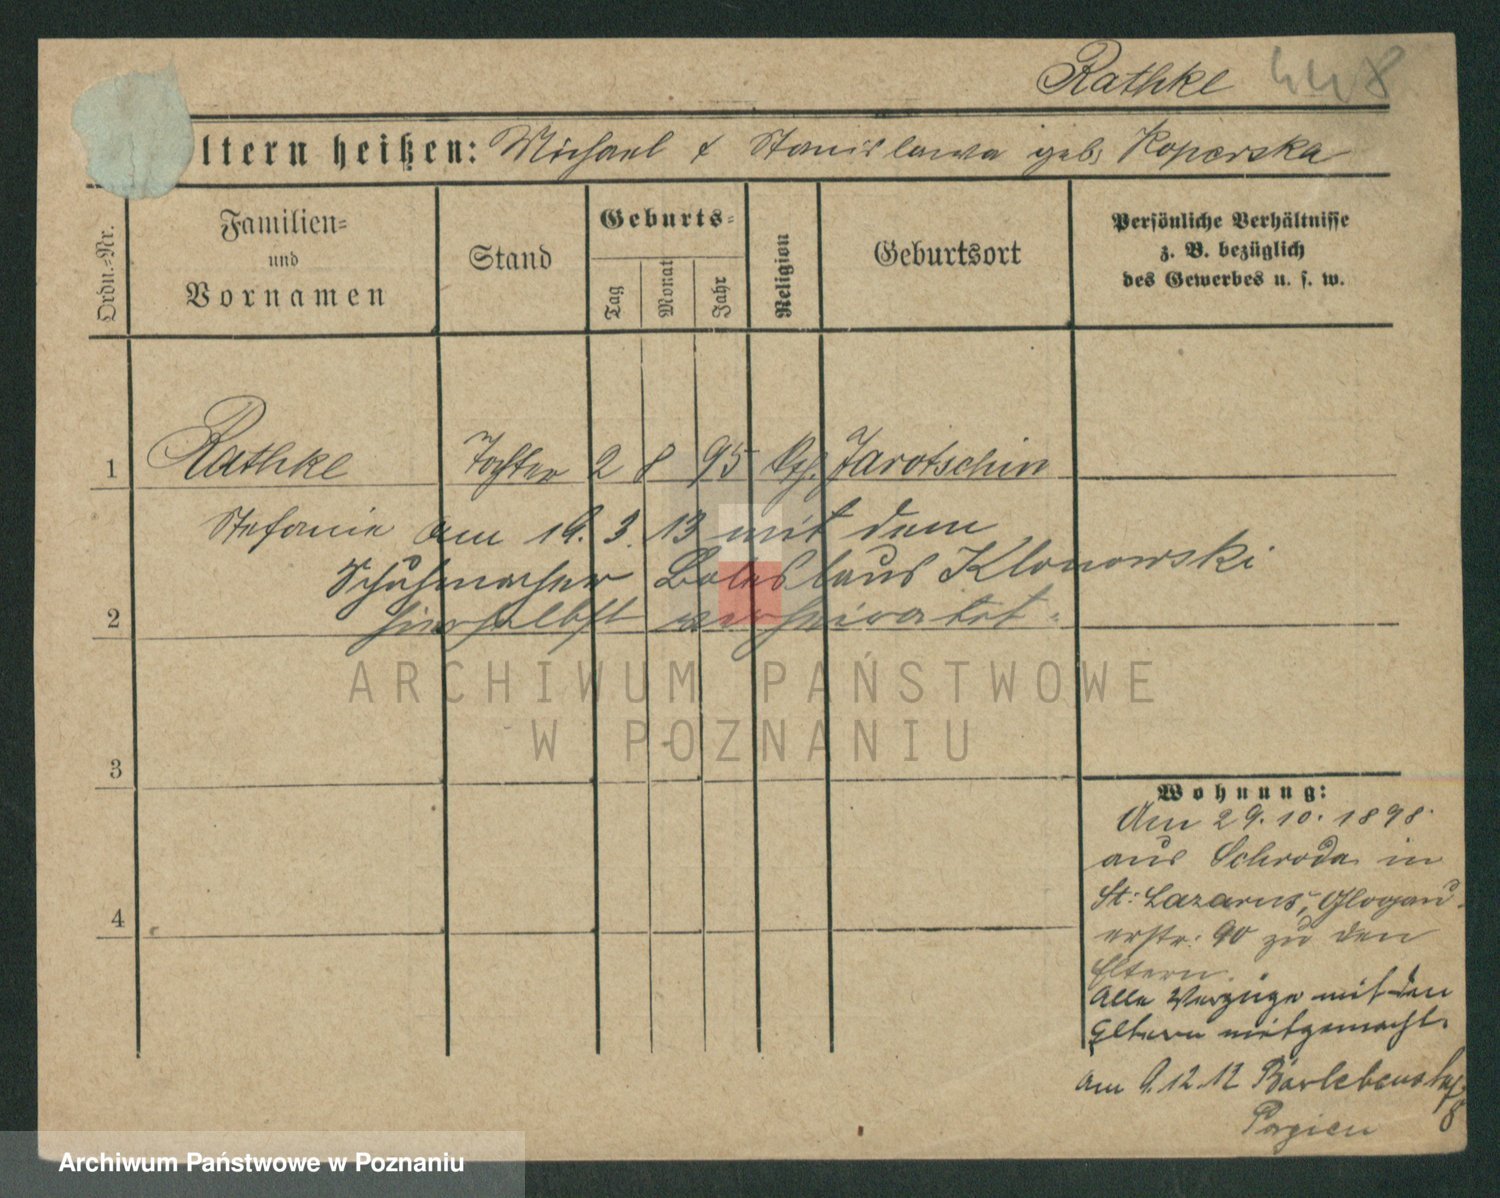 Rathke 448
ltern heißen: Michael & Stanislawa geb. Koperska
Ordn.-Nr.
Familien-
und
Vornamen
Stand
Geburts-
Tag
Monat
Jahr
Religion
Geburtsort
Persönliche Verhältnisse
z. B. bezüglich
des Gewerbes u. s. w.
1 Rathke Tochter 2 8 95 kth. Jarotschin
Stefanie am 19. 3. 13 mit dem
Schuhmacher Boleslaus Klonowski
2 hierselbst verheiratet.
ARCHIWUM PAŃSTWOWE
W POZNANIU
3
4
Wohnung:
Am 29. 10. 1898
aus Schroda in
St. Lazarus, Glogau-
erstr. 90 zu den
Eltern.
Alle Verzüge mit den
Eltern mitgemacht.
am 9.12.12 Bärleben
8
Archiwum Państwowe w Poznaniu